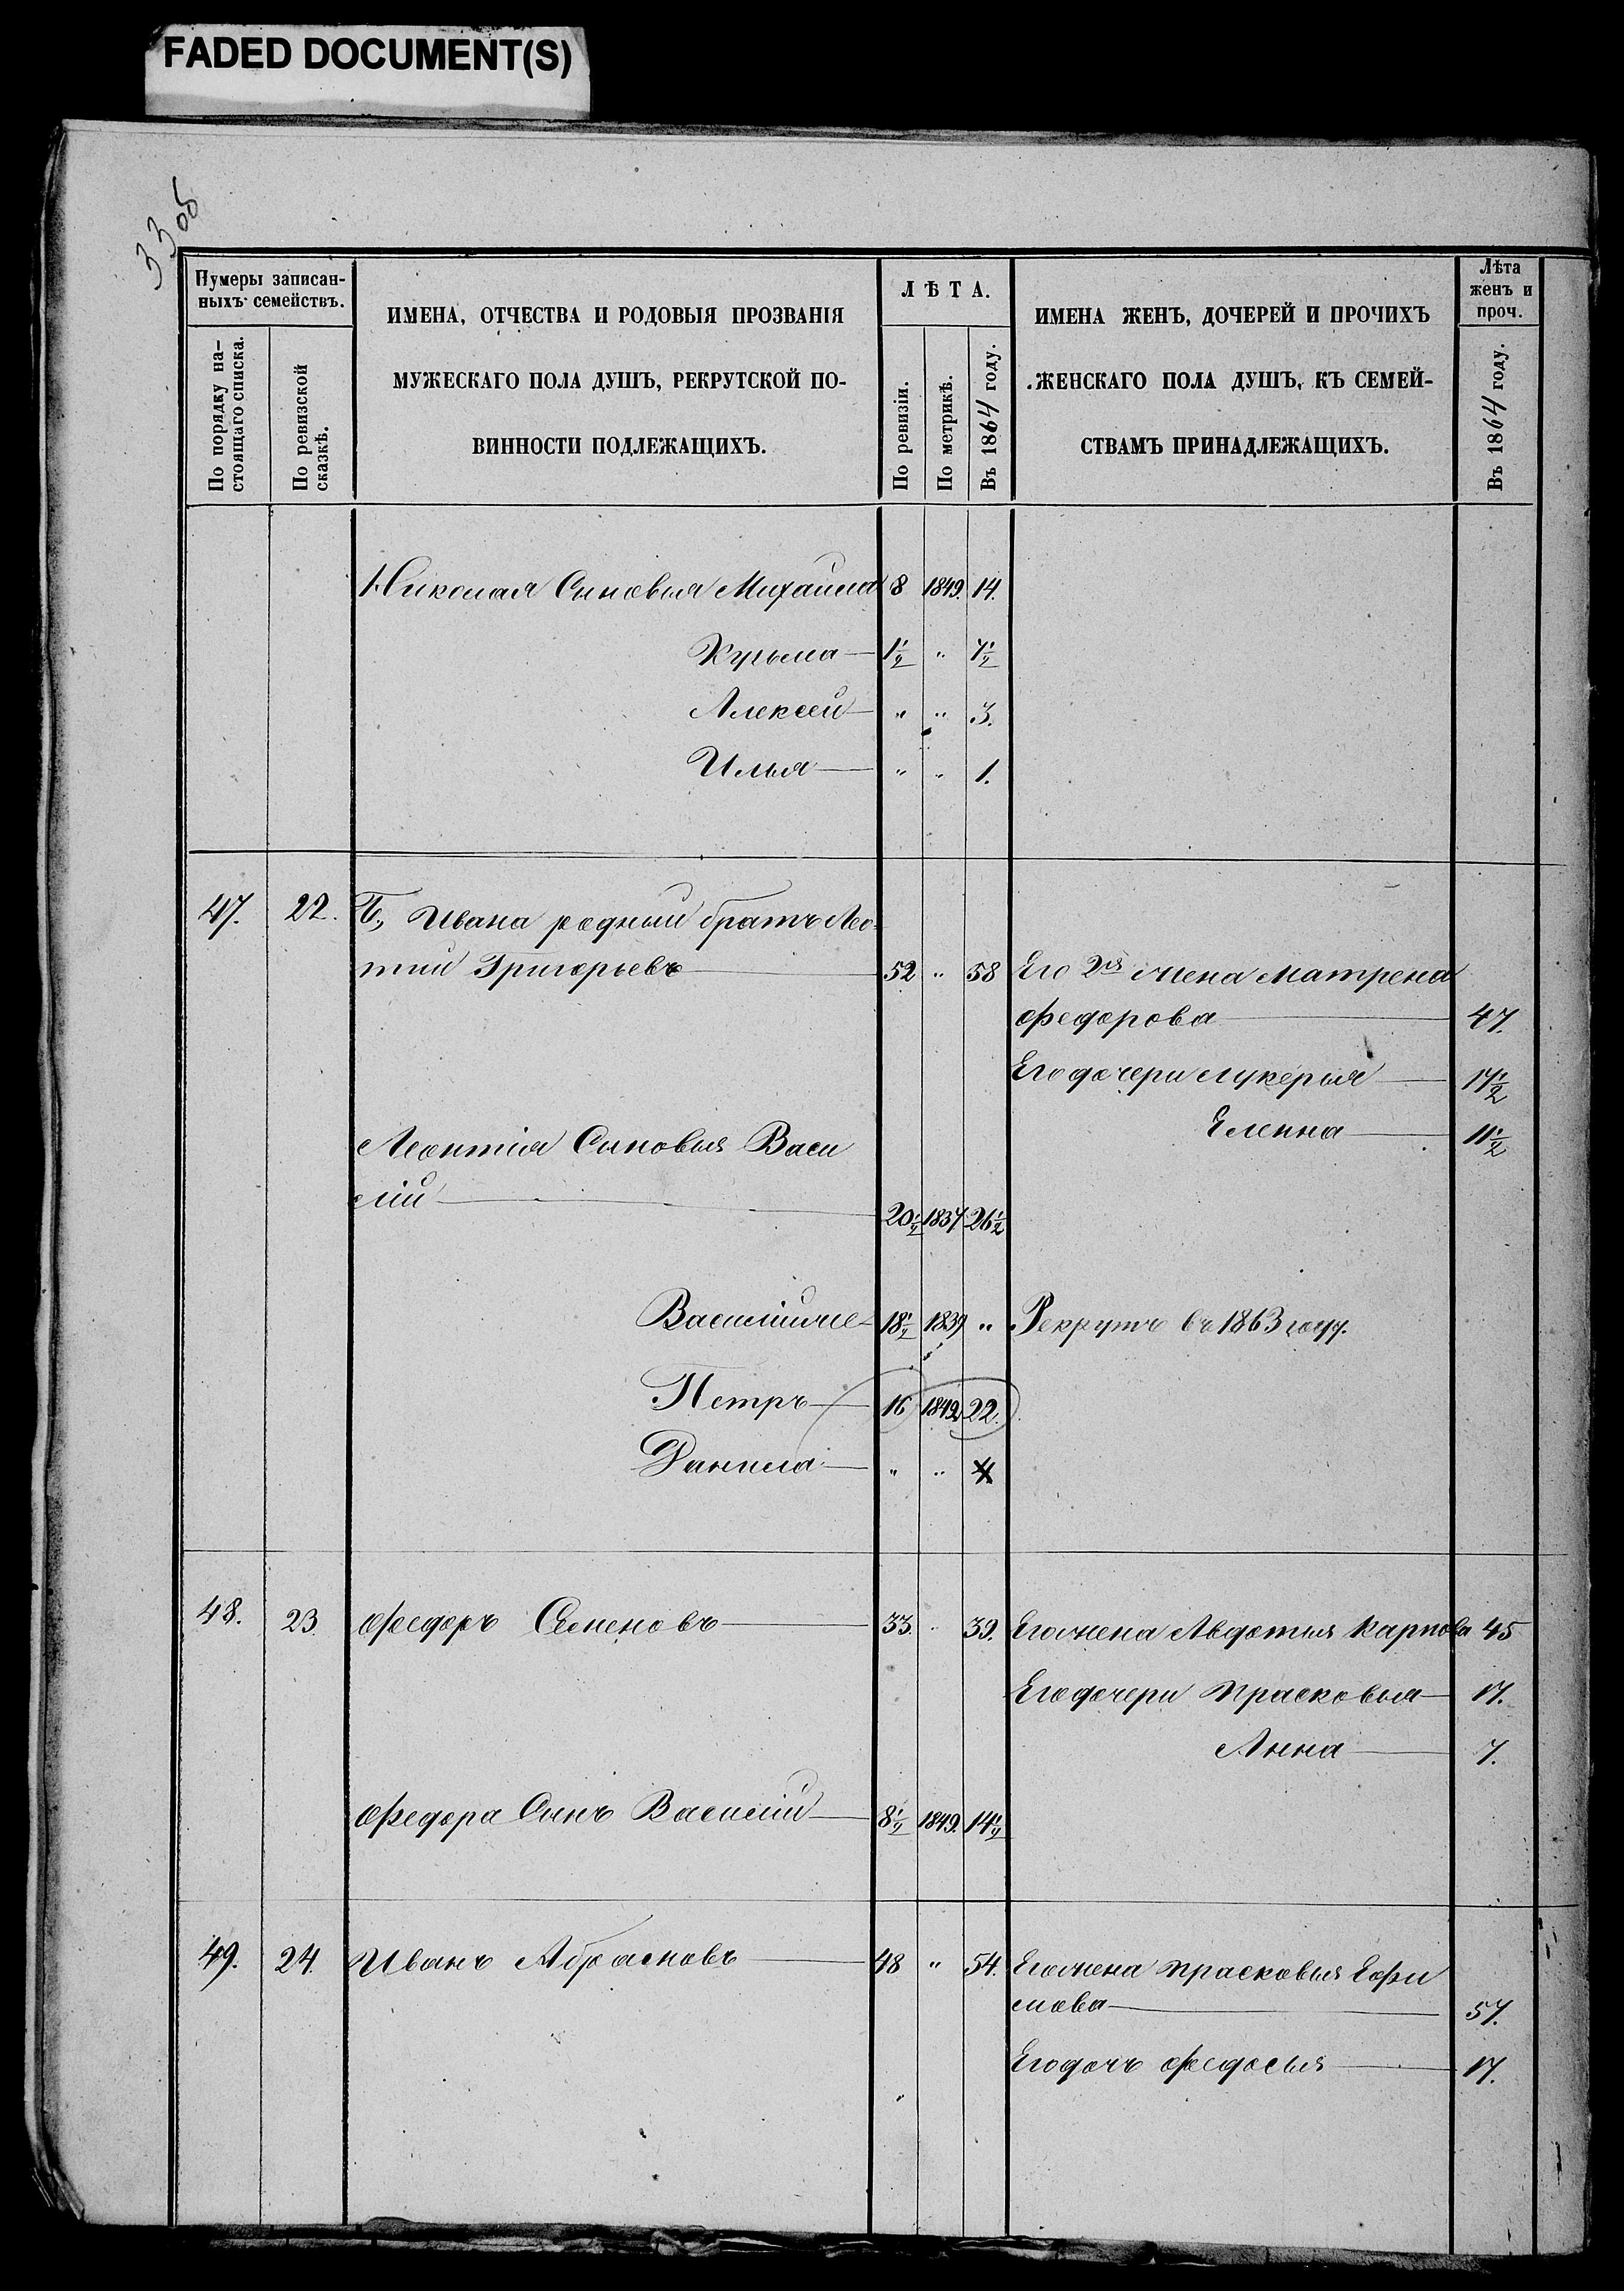 FADED DOCUMENT(S)
33об
Нумеры записан-
ныхъ семействъ.
По порядку на-
стоящаго списка.
По ревизской
сказкѣ.
ИМЕНА, ОТЧЕСТВА И РОДОВЫЯ ПРОЗВАНІЯ
МУЖЕСКАГО ПОЛА ДУШЪ, РЕКРУТСКОЙ ПО-
ВИННОСТИ ПОДЛЕЖАЩИХЪ.
ЛѢТА.
По ревизіи.
По метрикѣ.
Въ 1864 году.
ИМЕНА ЖЕНЪ, ДОЧЕРЕЙ И ПРОЧИХЪ
ЖЕНСКАГО ПОЛА ДУШЪ, КЪ СЕМЕЙ-
СТВАМЪ ПРИНАДЛЕЖАЩИХЪ.
Лѣта
женъ и
проч.
Въ 1864 году.
Николая Сыновья Михайла 8 1849. 14.
Кузьма 1½ " 7½
Алексей " " 3.
Илья " " 1.
47. 22. Б, Ивана родный братъ Лео-
нтий Григорьевъ 52 " 58 Его 2я жена Матрена
Федорова 47.
Его дочери Лукерья 17½
Еленна 11½
Леонтія Сыновья Васи
лій 20½ 1837 26½
Василий же 18½ 1839 " Рекрутъ въ 1863 году.
Петръ 16 1842 22.
Данила " " 4
48. 23. Федоръ Семеновъ 33. " 39. Его жена Авдотья Карпова 45
Его дочери Прасковья 17.
Анна 7.
Федора Сынъ Василій 8½ 1849. 14½
49. 24. Иванъ Абрамовъ 48 " 54. Его жена Прасковья Ефи
мова 57.
Его дочь Федосья 17.